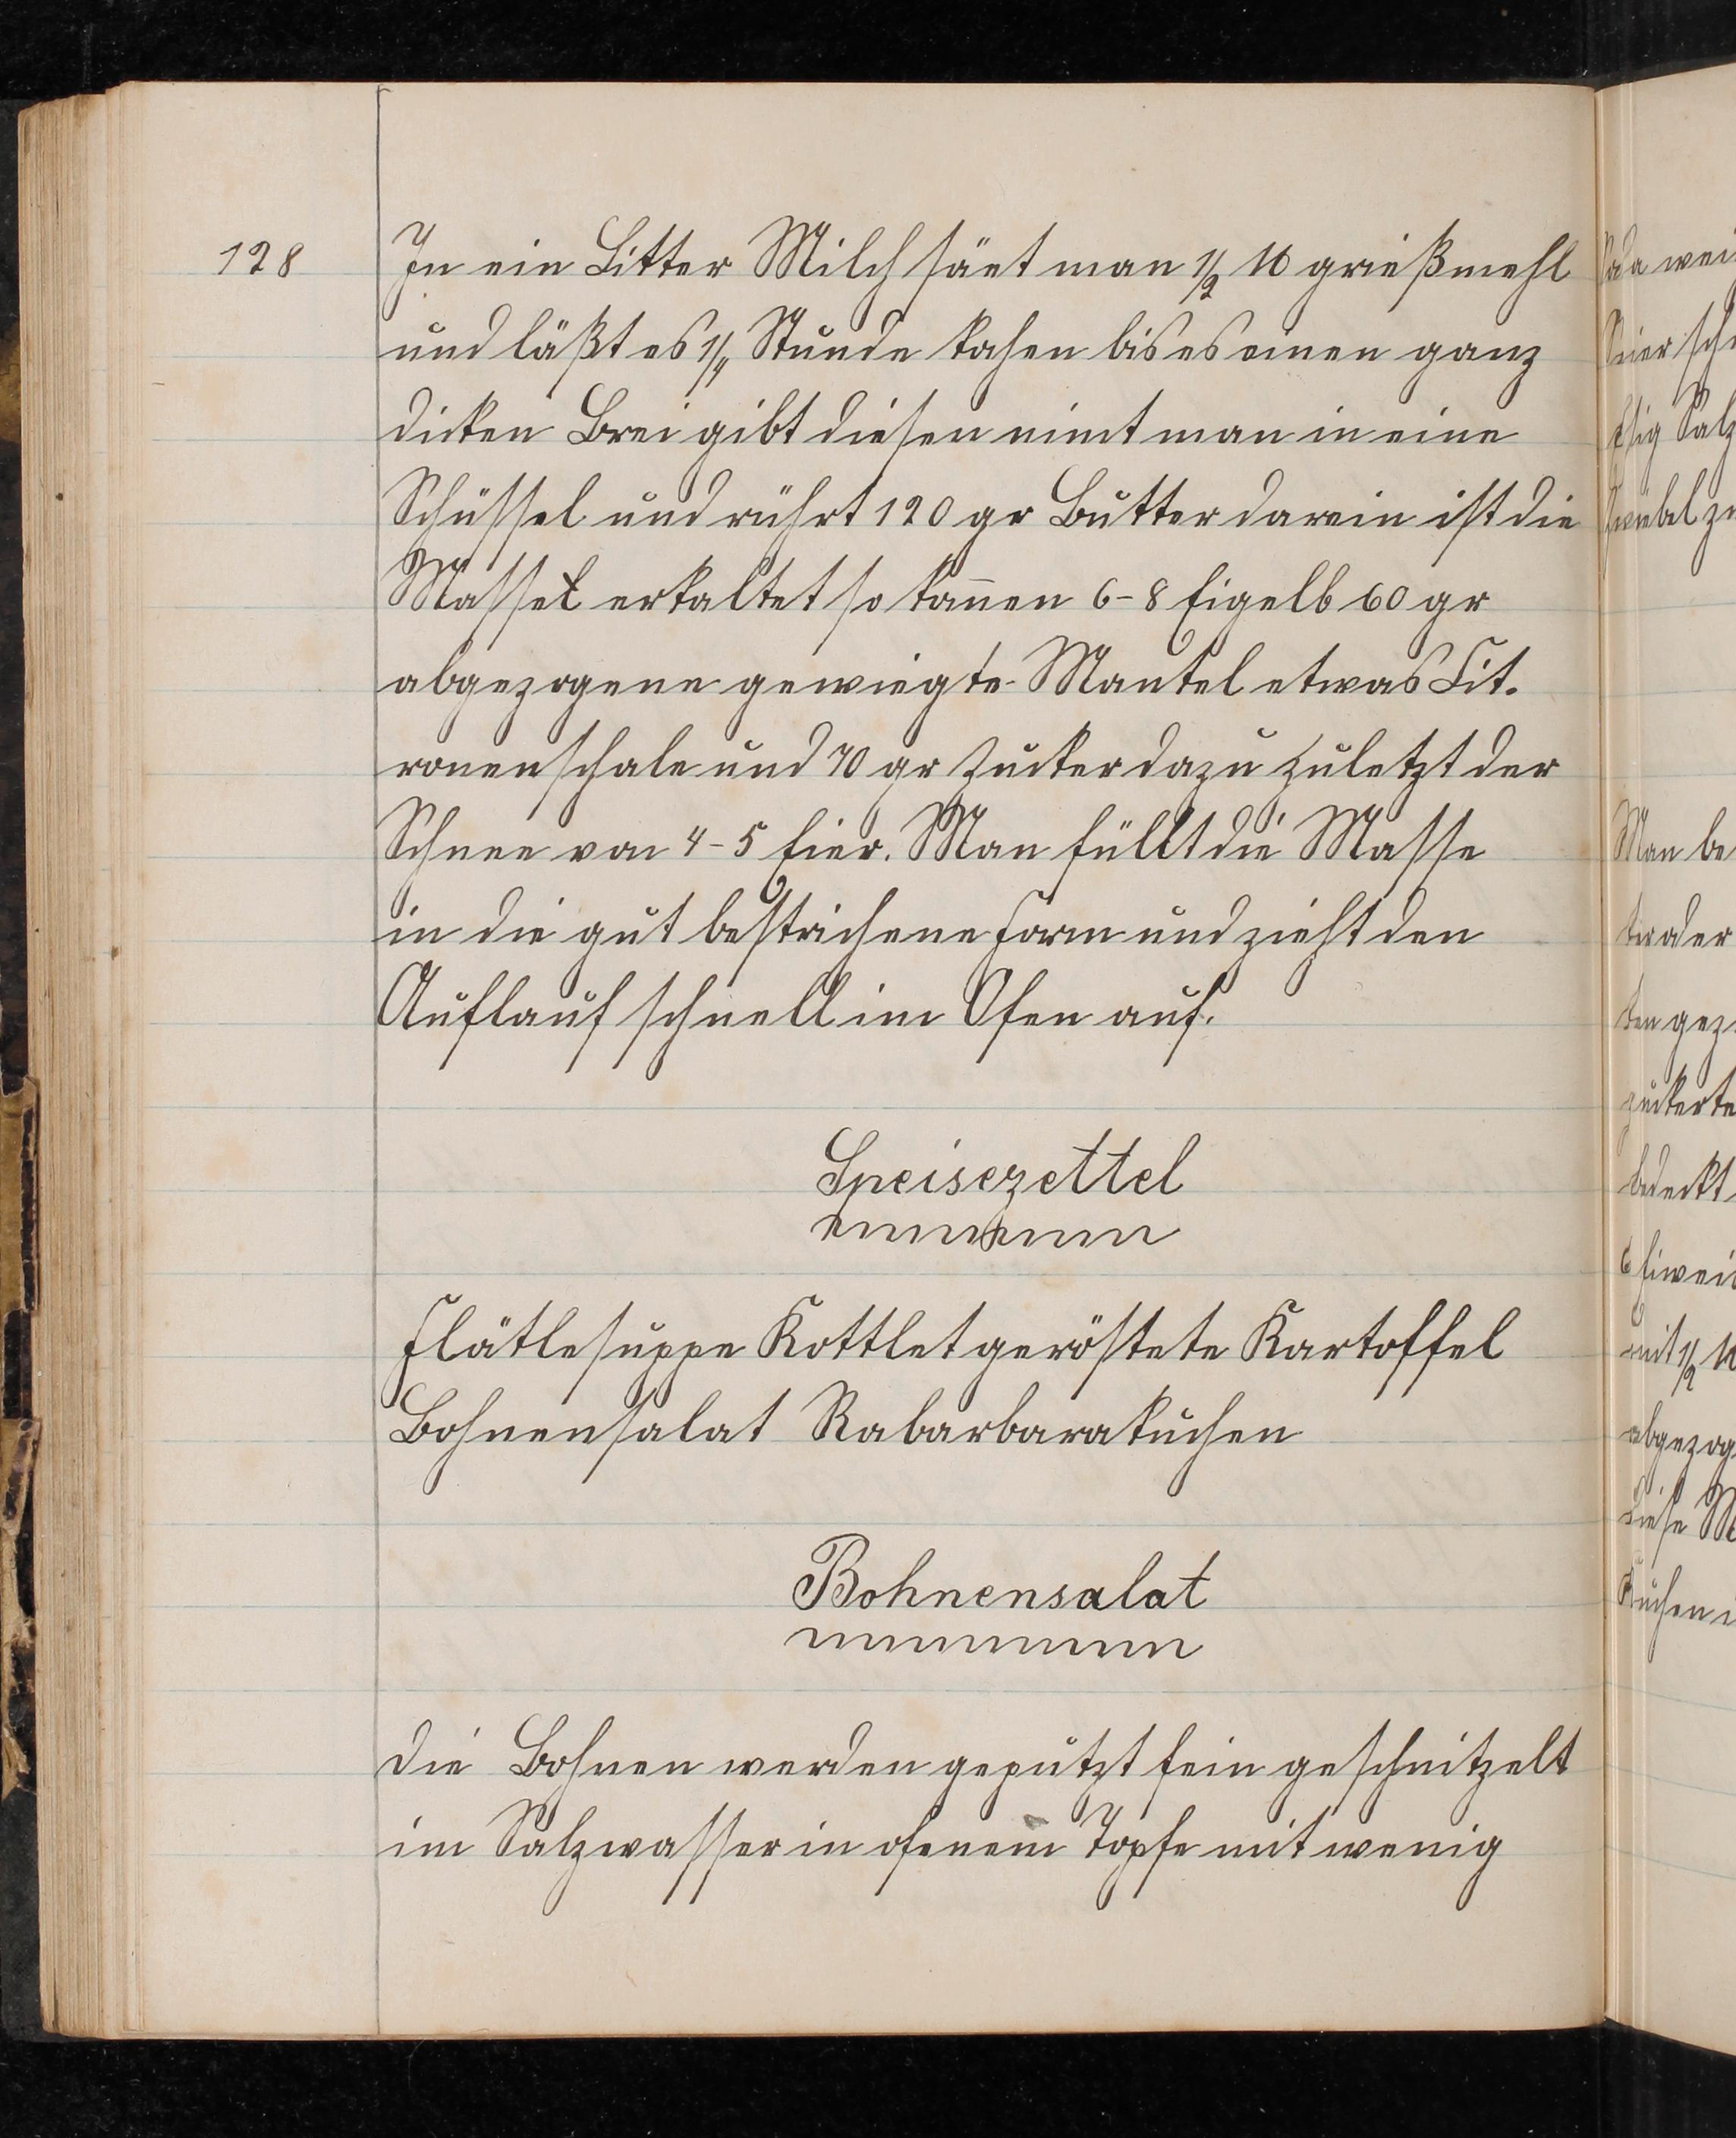 128
In ein Litter Milch säet man 1/2 ℔ grießmehl
und läßt es 1/4 Stunde kohen bis es einen ganz
dicken Brei gibt diesen nimt man in eine
Schüssel und rührt 120 gr Butter darein ist die
Masse erkaltet so kom̄en 6-8 Eigelb 60 gr
abgezogene gewiegte Mantel etwas Cit-
ronenschale und 70 gr Zucker dazu zuletzt der
Schnee von 4-5 Eier. Man füllt die Masse
in die gut bestrichene Form und zieht den
Auflauf schnell im Ofen auf.
Speisezettel
Flätlesuppe Kottlet geröstete Kartoffel
Bohnensalat Rabarbarakuchen
Bohnensalat
Die Bohnen werden geputzt fein geschnitzelt
im Salzwasser in ofenem Topfe mit wenig